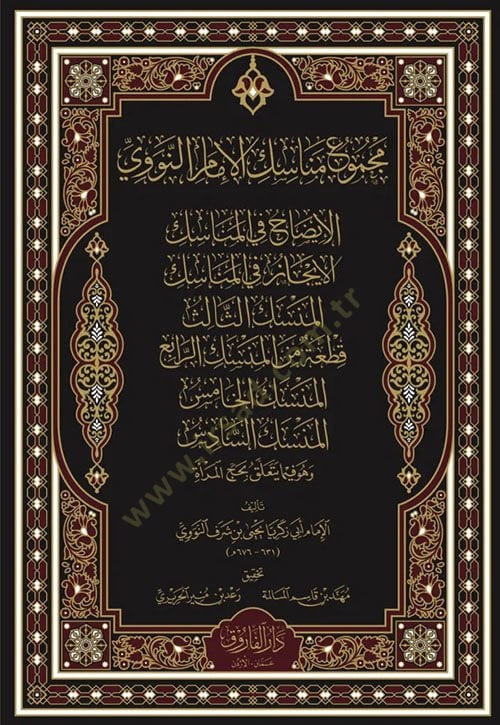 مجموع مناسك الإمام النووي
الإيضاح في المناسك
الإيجاز في المناسك
المنسك الثالث
قطعة من المنسك الرابع
المنسك الخامس
المنسك السادس
وهو فيما يتعلق بحج المرأة
تأليف
الإمام أبي زكريا يحيى بن شرف النووي
(٦٣١ - ٦٧٦هـ)
تحقيق
مهند بن قاسم المسالمة رعد بن منير الحريري
دار الفاروق
عمان - الأردن